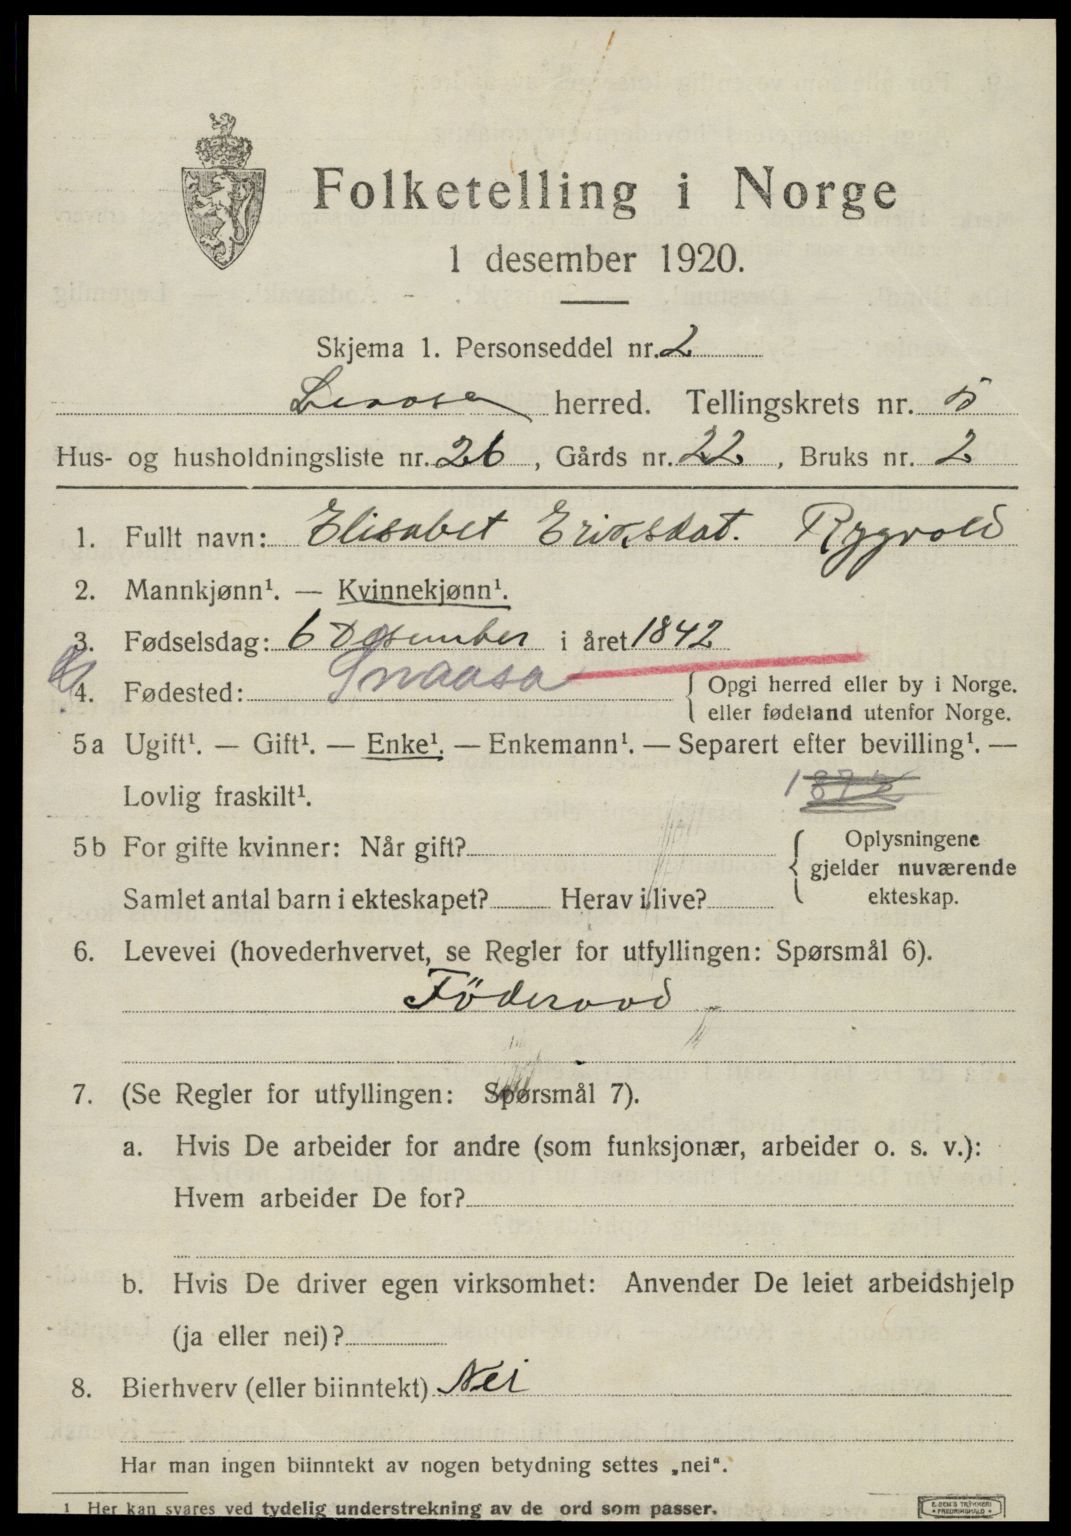 Folketelling i Norge
1 desember 1920.
Skjema 1. Personseddel nr. 2
herred. Tellingskrets nr. 5
Hus- og husholdningsliste nr. 26, Gårds nr. 22, Bruks nr. 2
1. Fullt navn: Elisabet Eriksdat. Rygvold
2. Mannkjønn¹. — Kvinnekjønn¹.
3. Fødselsdag: 6 Desember i året 1842
4. Fødested: Snaasa { Opgi herred eller by i Norge.
eller fødeland utenfor Norge.
5a Ugift¹. — Gift¹. — Enke¹. — Enkemann¹. — Separert efter bevilling¹. —
Lovlig fraskilt¹.
5b For gifte kvinner: Når gift? { Oplysningene
gjelder nuværende
Samlet antal barn i ekteskapet? Herav i live? ekteskap.
6. Levevei (hovederhvervet, se Regler for utfyllingen: Spørsmål 6).
Föderaad
7. (Se Regler for utfyllingen: Spørsmål 7).
a. Hvis De arbeider for andre (som funksjonær, arbeider o. s. v.):
Hvem arbeider De for?
b. Hvis De driver egen virksomhet: Anvender De leiet arbeidshjelp
(ja eller nei)?
8. Bierhverv (eller biinntekt) Nei
Har man ingen biinntekt av nogen betydning settes „nei“.
¹ Her kan svares ved tydelig understrekning av de ord som passer.
E. SEM'S TRYKKERI
FREDRIKSHALD